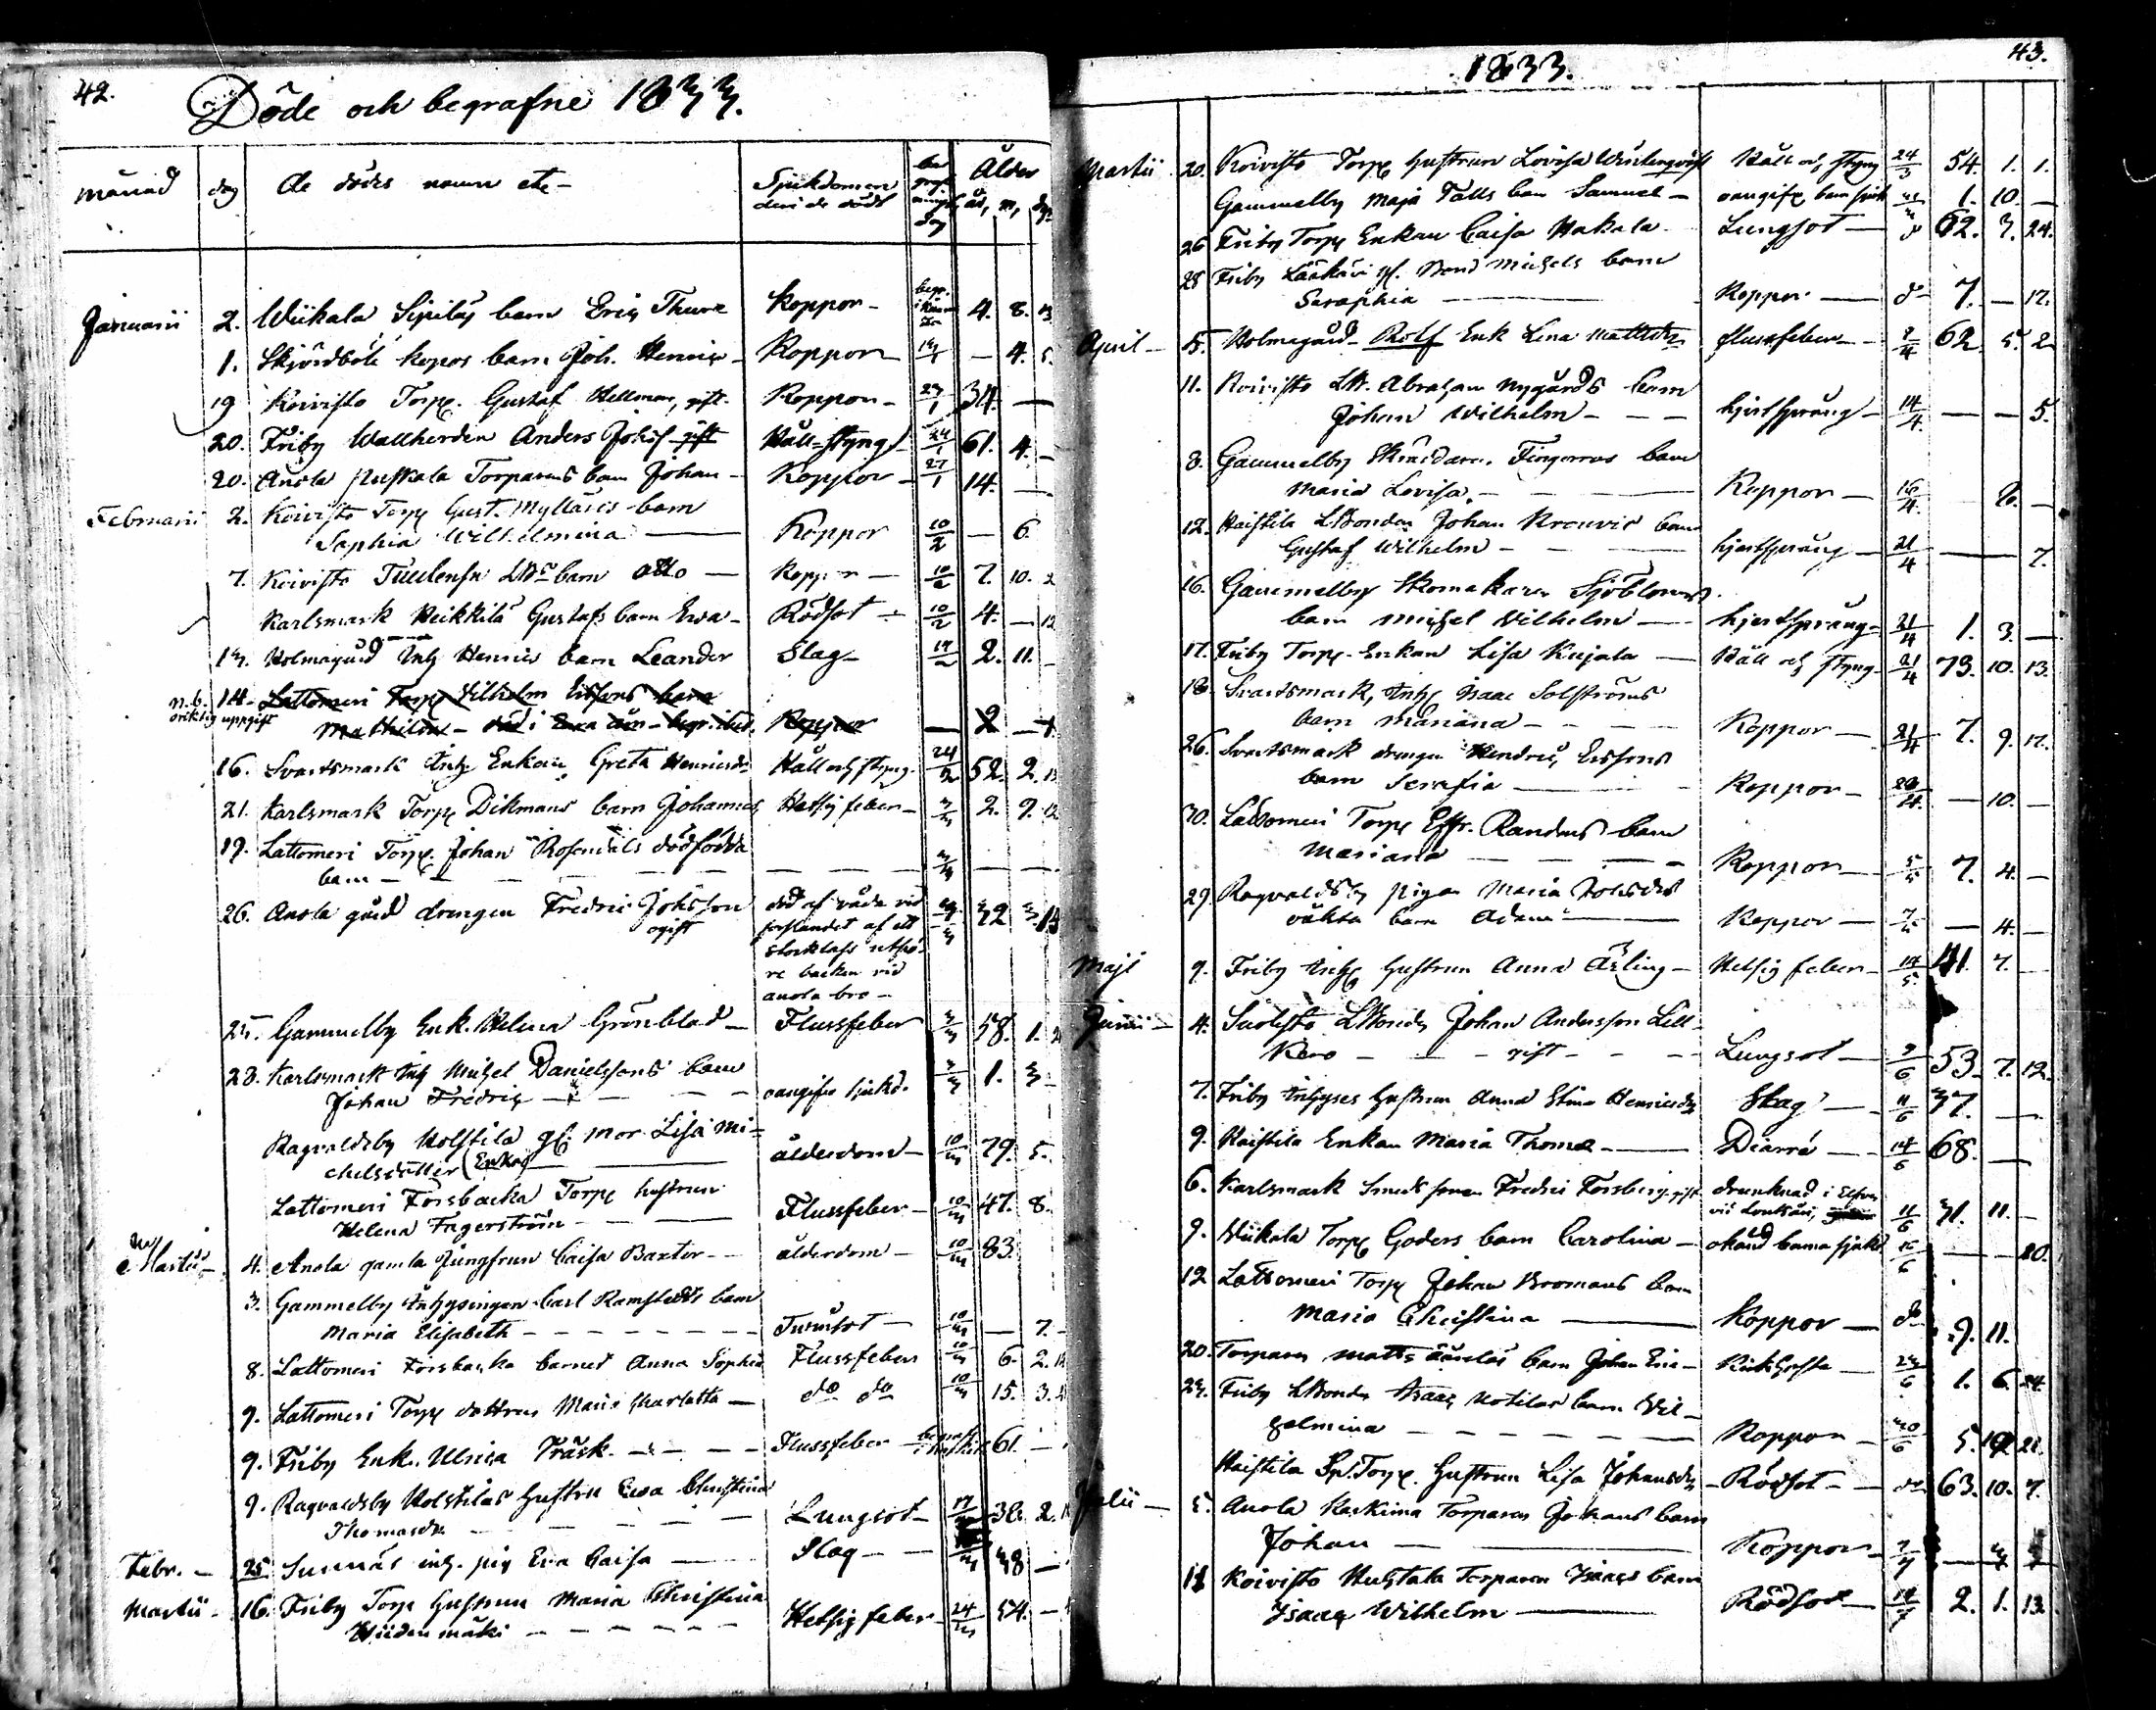 42.
Döde och begrafne 1833.
månad dag De dödes namn etc- Sjukdomen den de dödt begrafnings dag Ålder år, m, dg.
Januarii 2. Wiikala Sipilas barn Eric Thure Koppor- 4. 8.
1. Skjördböle kopos barn Joh. Henric- Koppor - 4. 5.
19 Koivisto Torp. Gustaf Hellman, gift. Koppor- 34. -
20. Friby Wallherden Anders Johss gift Håll-styng 24/1 61. 4. -
20. Anola Torparens barn Johan- Koppor- 27/1 14. -
Februarii 2. Koivisto Torp Gust. Myllaris barn
Sophia Wilhelmina Koppor 10/2 - 6.
7. Koivisto barn Otto - Koppor- 10/2 7. 10. 2
Karlsmark Heikkilä Gustafs barn Ewa- Rödsot- 10/2 4. - 12
13. Holmagård Inh Henrics barn Leander Slag- 2. 11. -
n.b. 14. Lattomeri Torp Wilhelm barn
oriktig uppgift Mathilda- död i Koppor - 2 -
16. Svartsmark Inh Enkan Greta Henricsdr Håll och styng. 24/2 52. 2.
21. Karlsmark Torp Dikmans barn Johannes Hetsig feber- 3/3 2. 9. 12
19. Lattomeri Torp. Johan Rosendals dödfödda
barn - - - 3/3 - -
26. Anola gård drengen Fredric Johsson död af våda vid
ogift 32 3. 13
stocklass utför
backen vid
Anola bro-
25. Gammelby Enk. Helena Grönblad- Flussfeber 3/3 58. 1. 2
28. Karlsmark Inh Michel Danielssons barn
Johan Fredric - - - oangifven sjukd. 3/3 1. 3 -
Ragvaldsby Holstila gl. mor Lisa Mi-
chelsdotter (Enka) ålderdom- 10/3 79. 5.
Lattomeri Forsbacka Torp hustrun
Helena Fagerström - - Flussfeber- 10/3 47. 8.
Martii- 4. Anola gamla Jungfrun Caisa Baxter- ålderdom- 10/3 83
3. Gammelby Inhysingen Carl Ramstedts barn
Maria Elisabeth - - - - 10/3 - 7. -
8. Lattomeri Forsbacka barnet Anna Sophia Flussfeber 10/3 6. 2.
9. Lattomeri Torp dottren Maria Charlotta - do do 10/3 15. 3.
9. Friby Enk. Ulrica Träsk. - - - Flussfeber 61. -
9. Ragvaldsby Holstilas hustru Ewa Christina
Thomasdr - - - Lungsot- 17/3 38. 2.
Febr. - 25. Susnäs inh. pig Eva Caisa Slag- - 38 -
Martii- 16. Friby Torp hustrun Maria Christina
Wiidenmäki - - - Hetsig feber- 24/3 54. -
1833. 43.
Martii 20. Koivisto Torp hustrun Lovisa Winterqvist Håll och styng 24/3 54. 1. 1.
Gammelby Maja Falls barn Samuel- oangifv barn sjuk 1. 10. -
26 Friby Torp Enkan Caisa Hakala- Lungsot- 62. 3. 24.
28 Friby Lääkäri Michels barn
Seraphia - Koppor- do 7. - 17.
April- 5. Holmagård- Rolf Enk Lena Mattsdr flussfeber- 7/4 62. 5. 2
11. Koivisto LB. Abraham Nygårds barn
Johan Wilhelm- - - hjertsprång- 14/4 - - 5.
8. Gammelby Skräddaren Fingerroos barn
Maria Lovisa, - Koppor- 16/4 6. -
12. Haistila LBonden Johan Krouvis barn
Gustaf Wilhelm- - hjertsprång- 21/4 - 7.
16. Gammelby Skomakaren Sjöbloms
barn Michel Wilhelm- hjertsprång- 21/4 1. 3. -
17. Friby Torp. Enkan Lisa Kujala- Håll och styng- 21/4 73. 10. 13.
18. Svartsmark, Inh Isaac Solströms
barn Mariana- - - Koppor- 21/4 7. 9. 17.
26. Svartsmark drengen Hendric Ersssons
barn Serafia - Koppor- 28/4 - 10. -
30. Lattomeri Torp Efr. Randens barn
Mariana - - - Koppor- 5/5 7. 4. -
29 Ragvaldsby pigan Maria
oäkta barn Adam- Koppor- - 4. -
Maji 9. Friby Inh hustrun Anna Åsling- Hetsig feber- 14/5 41. 7. -
Junii- 4. Suolisto LBonden Johan Andersson Lill-
Kero - - - gift- - - Lungsot- 9/6 53. 7. 12.
7. Friby Inhyses hustrun Anna Stina Henricsdr Slag- 11/6 37. -
9. Haistila Enkan Maria Thoma- Diarré- 14/6 68. -
6. Karlsmark Smeds sonen Fredric Forsberg gift drunknad i Elfven
vid 11/6 31. 11. -
9. Wiikala Torp Goders barn Carolina- okänd barnasjukd - - 20.
12 Lattomeri Torp Johan Bromans barn
Maria Christina - Koppor- do 9. 11.
20. Torparen Matts barn Johan Eric- Kikhosta- 23/6 1. 6. 24.
23. Friby LBonden Isaac Kotilas barn Wil-
helmina - - - Koppor- 30/6 5. 21.
Haistila Torp. hustrun Lisa Johansdr- Rödsot- do 63. 10. 7.
Julii- 5. Anola Keskinen Torparen Johans barn
Johan - Koppor- 7/7 - 3
11 Koivisto Huhtala Torparen Isaacs barn
Isaac Wilhelm - Rödsot- 14/7 2. 1. 13.